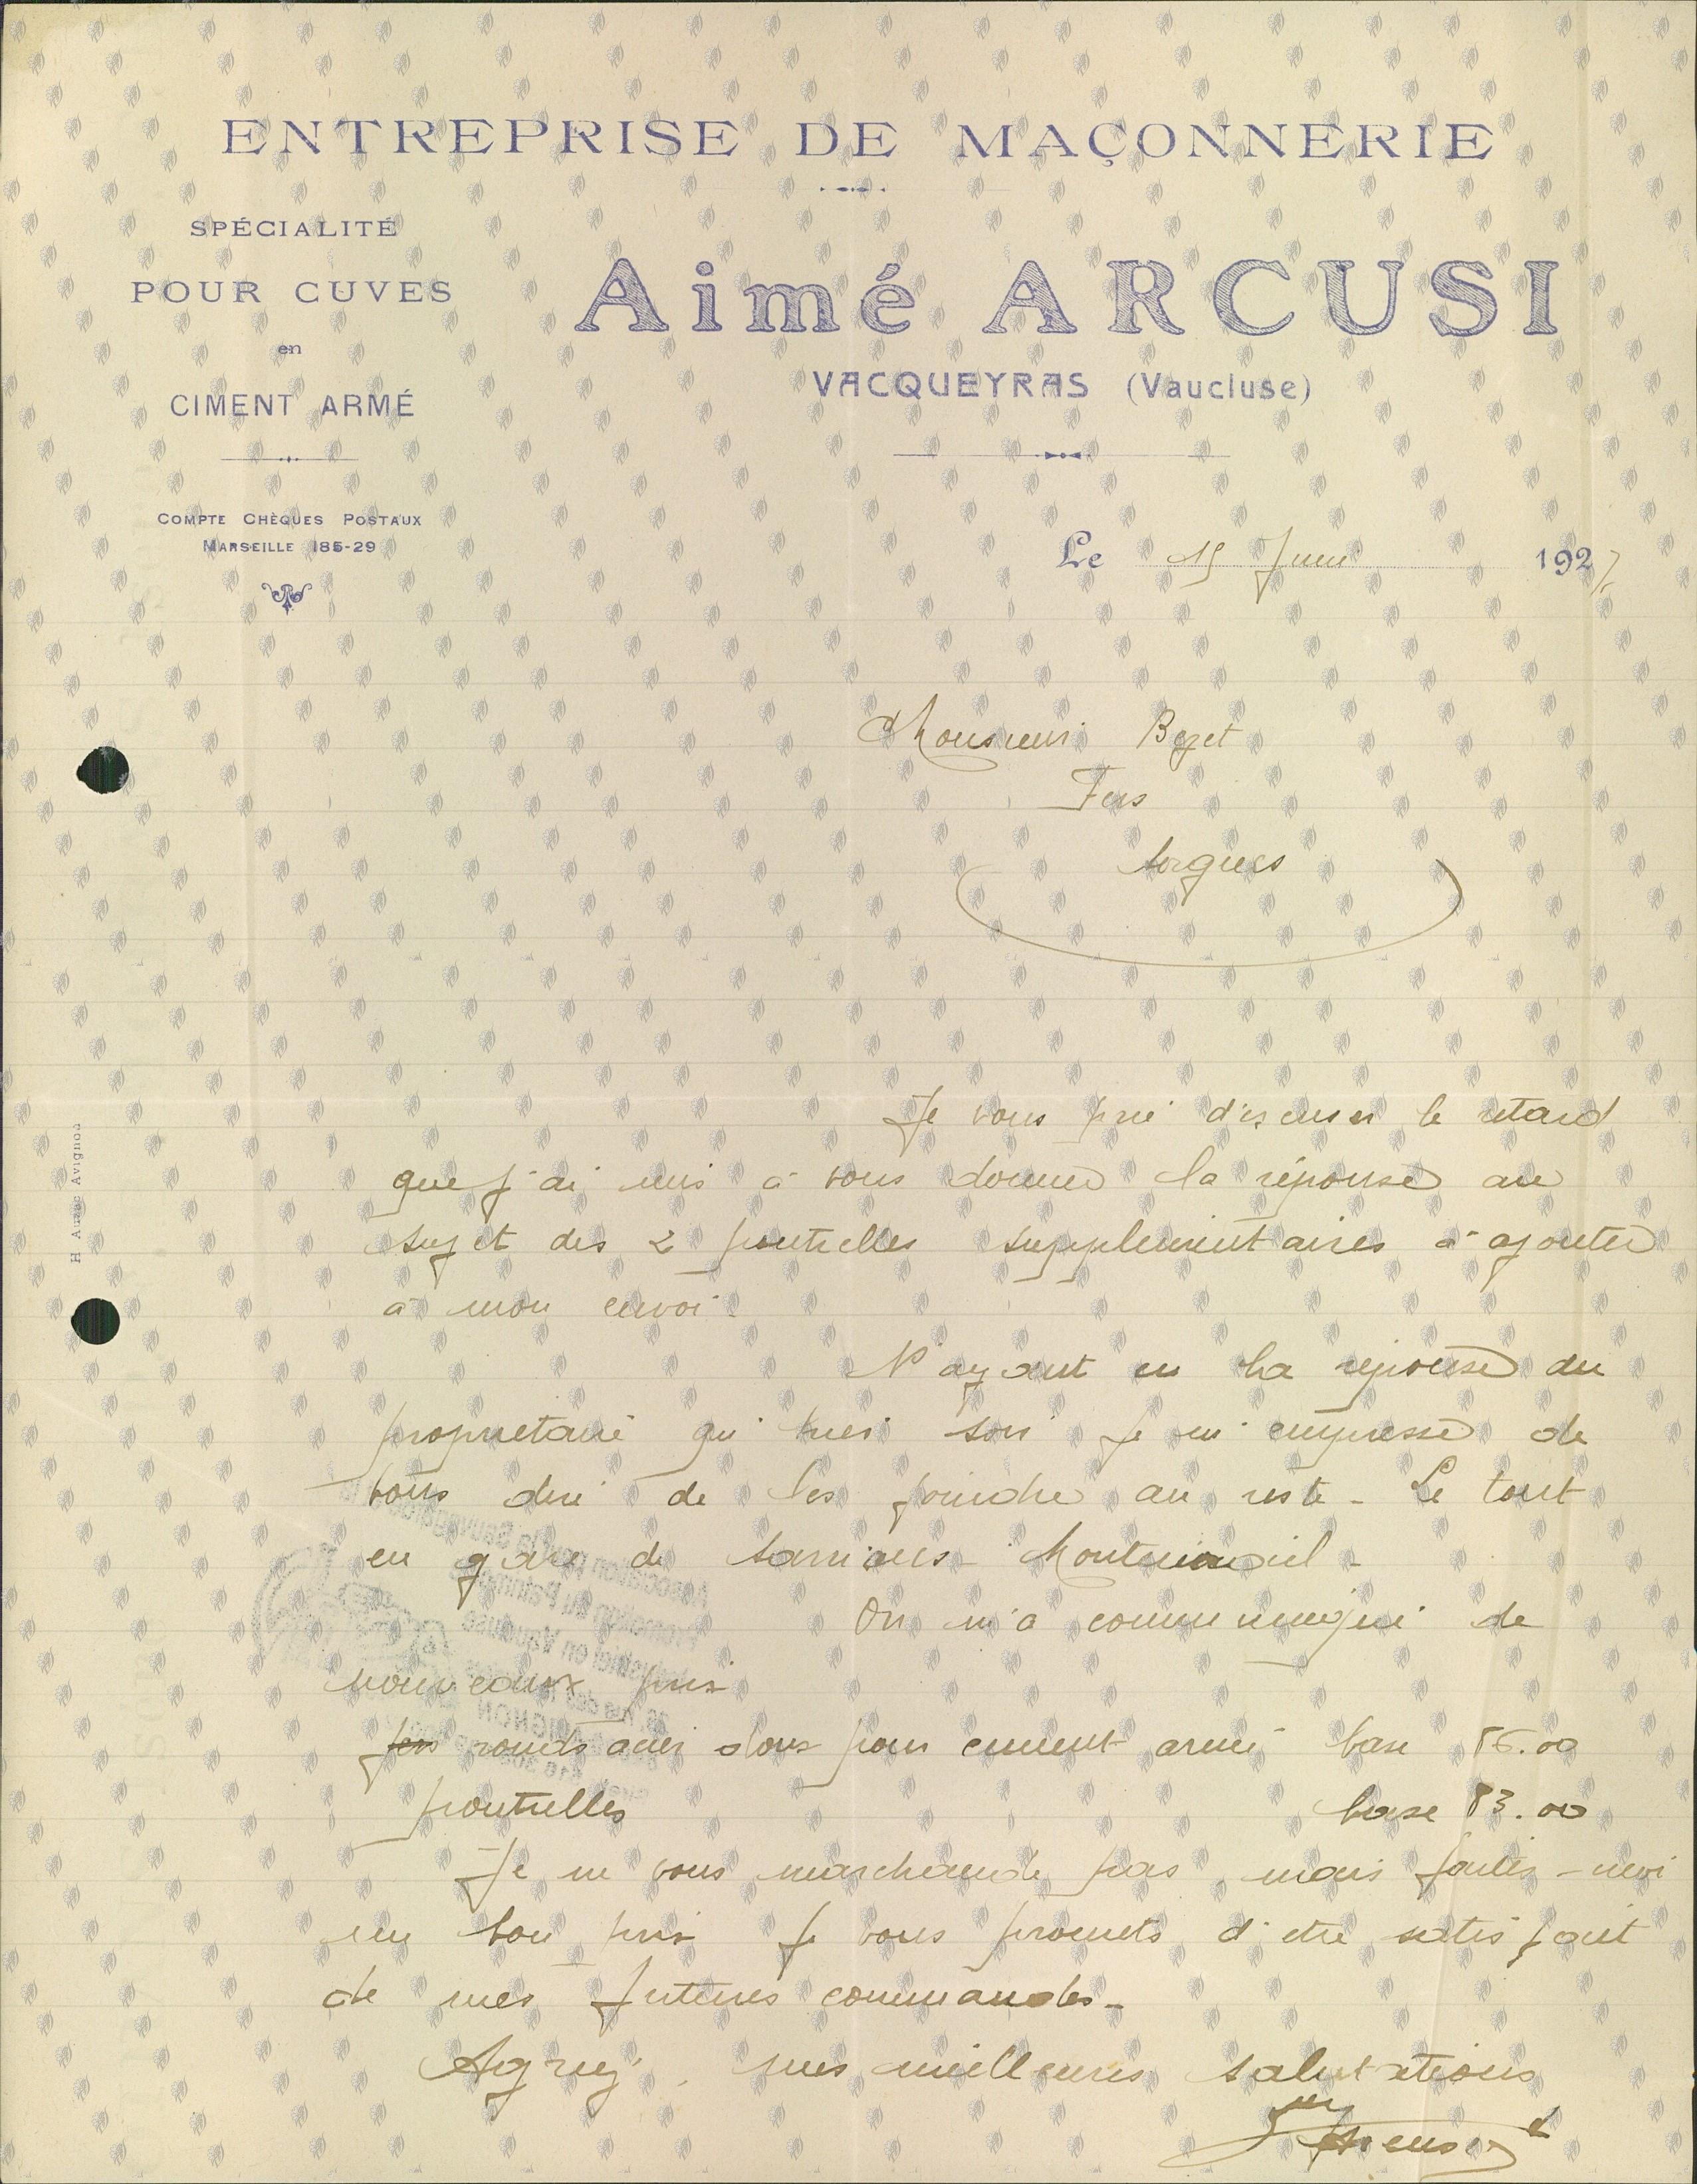 ENTREPRISE DE MAÇONNERIE
SPÉCIALITÉ
POUR CUVES
en
CIMENT ARMÉ
COMPTE CHÈQUES POSTAUX
MARSEILLE 185-29
Aimé ARCUSI
VACQUEYRAS (Vaucluse)
Le 15 Juin 1927
Monsieur Bezet
Fers
Sorgues
Je vous prie d'excuser le retard
que j'ai mis à vous donner la réponse au
sujet des 2 poutrelles supplementaires à ajouter
à mon envoi.
N'ayant eu la reponse du
propriétaire qu'hier soir je m'empresse de
vous dire de les joindre au reste - Le tout
en gare de Sarrians-Montmirail -
On m'a communiqué de
nouveaux prix
fers ronds acier doux pour ciment armé base 86.00
poutrelles base 83.00
Je ne vous marchande pas, mais faites-moi
un bon prix je vous promets d'etre satisfait
de mes futures commandes -
Agréez, mes meilleures salutations
H. Aubac Avignon